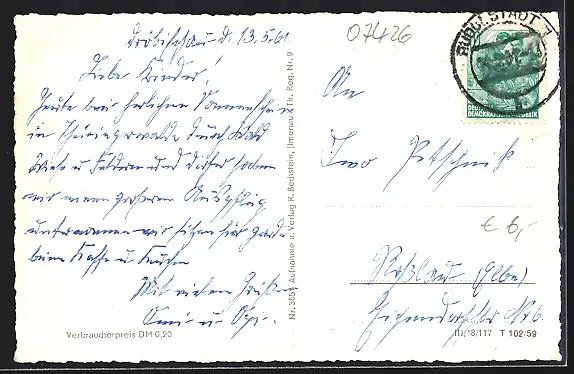 Dröbischau d. 13.5.61
Liebe Kinder!
Heute bei herlichen Sonnenschein
in Thüringerwalde durch Wald
Wiese u Feldern und Dörfer haben
wir einen größeren Ausflug
unternommen wir sitzen hier gerade
beim Kaffe u Kuchen
Mit vielen Grüßen
Omi u Opi.
Verbraucherpreis DM 0,20
Nr. 3651 Aufnahme u. Verlag R. Bechstein, Ilmenau i. Th. Reg. Nr. 9
07426
RUDOLSTADT 1
DEUTSCHE
DEMOKRATISCHE REPUBLIK
An
Ivo
€ 6,-
Roßlau (Elbe)
Eichendorffstr Nr 6.
III/18/117 T 102/59